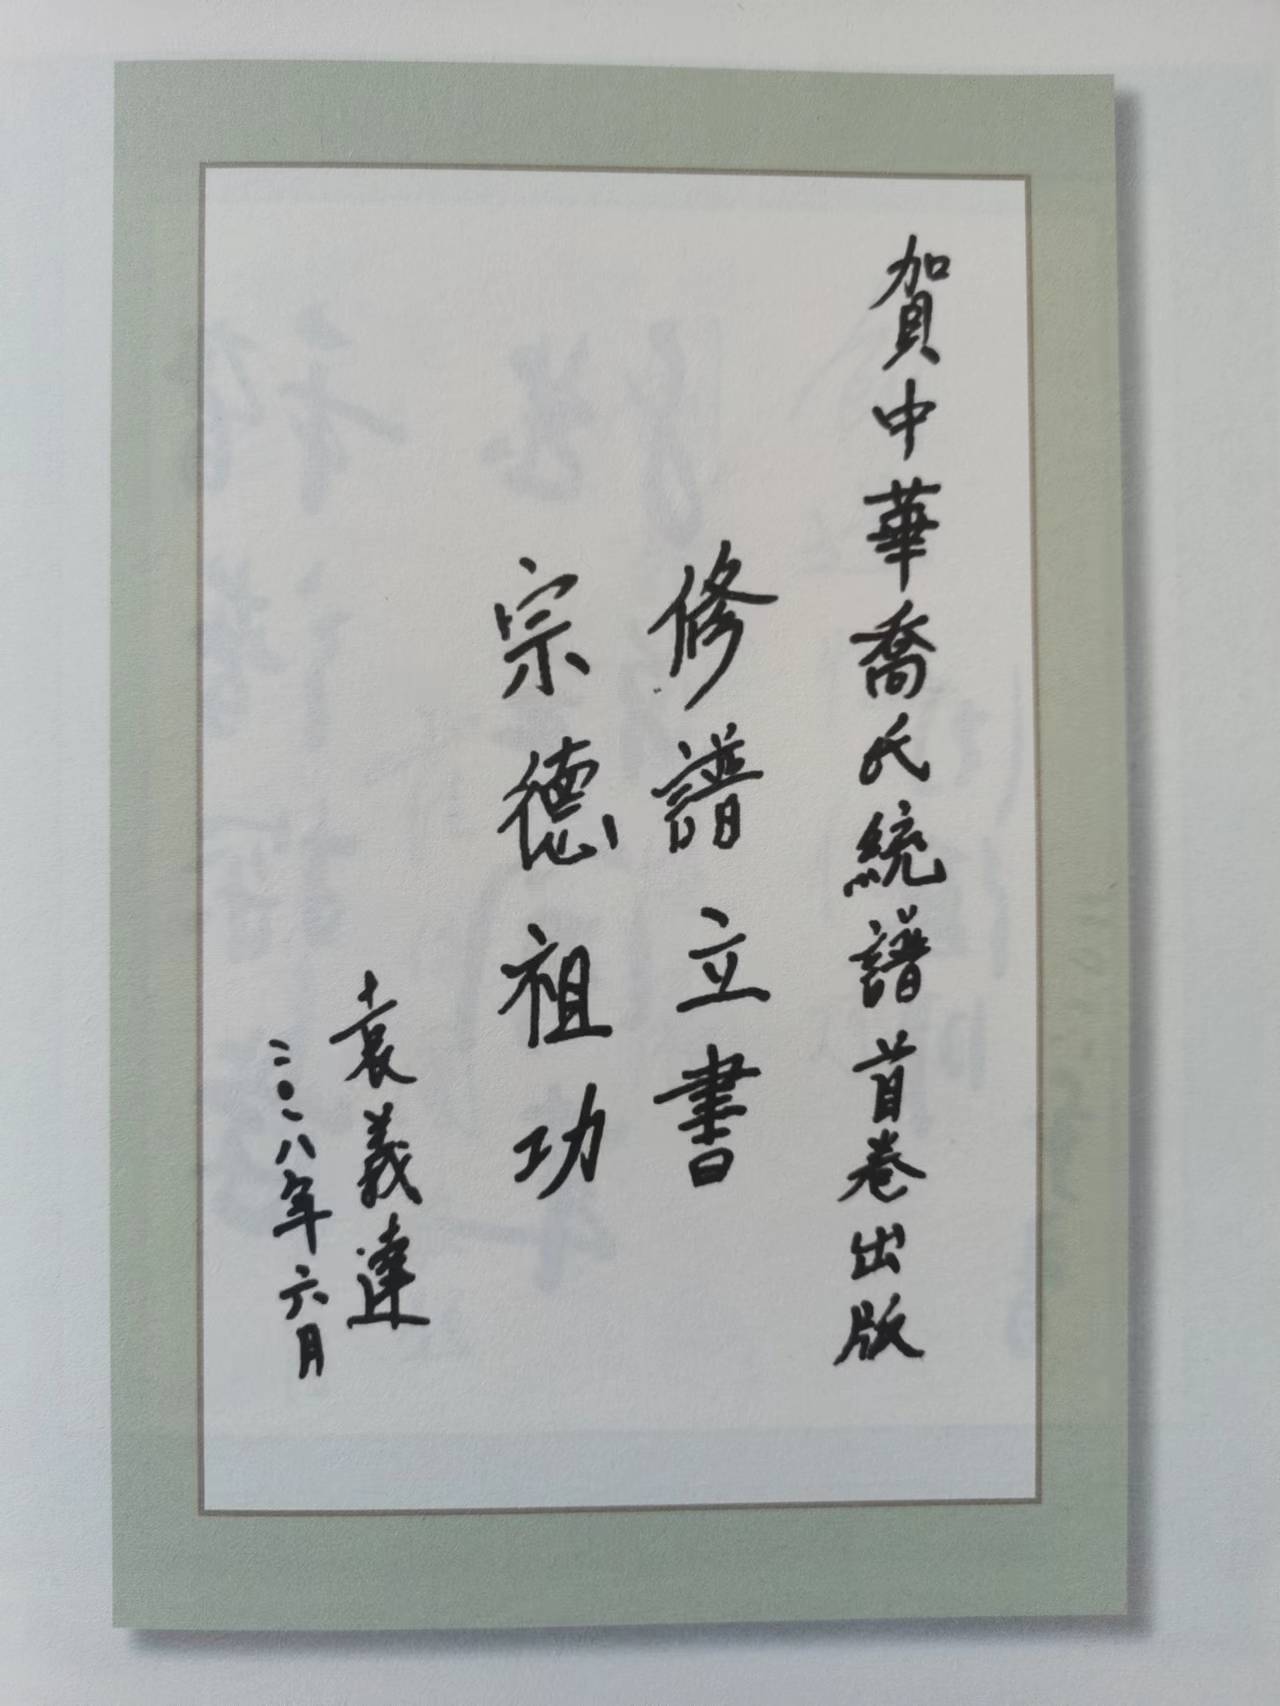 賀中華喬氏統譜首卷出版
修譜立書
宗德祖功
袁義達
二〇一八年六月